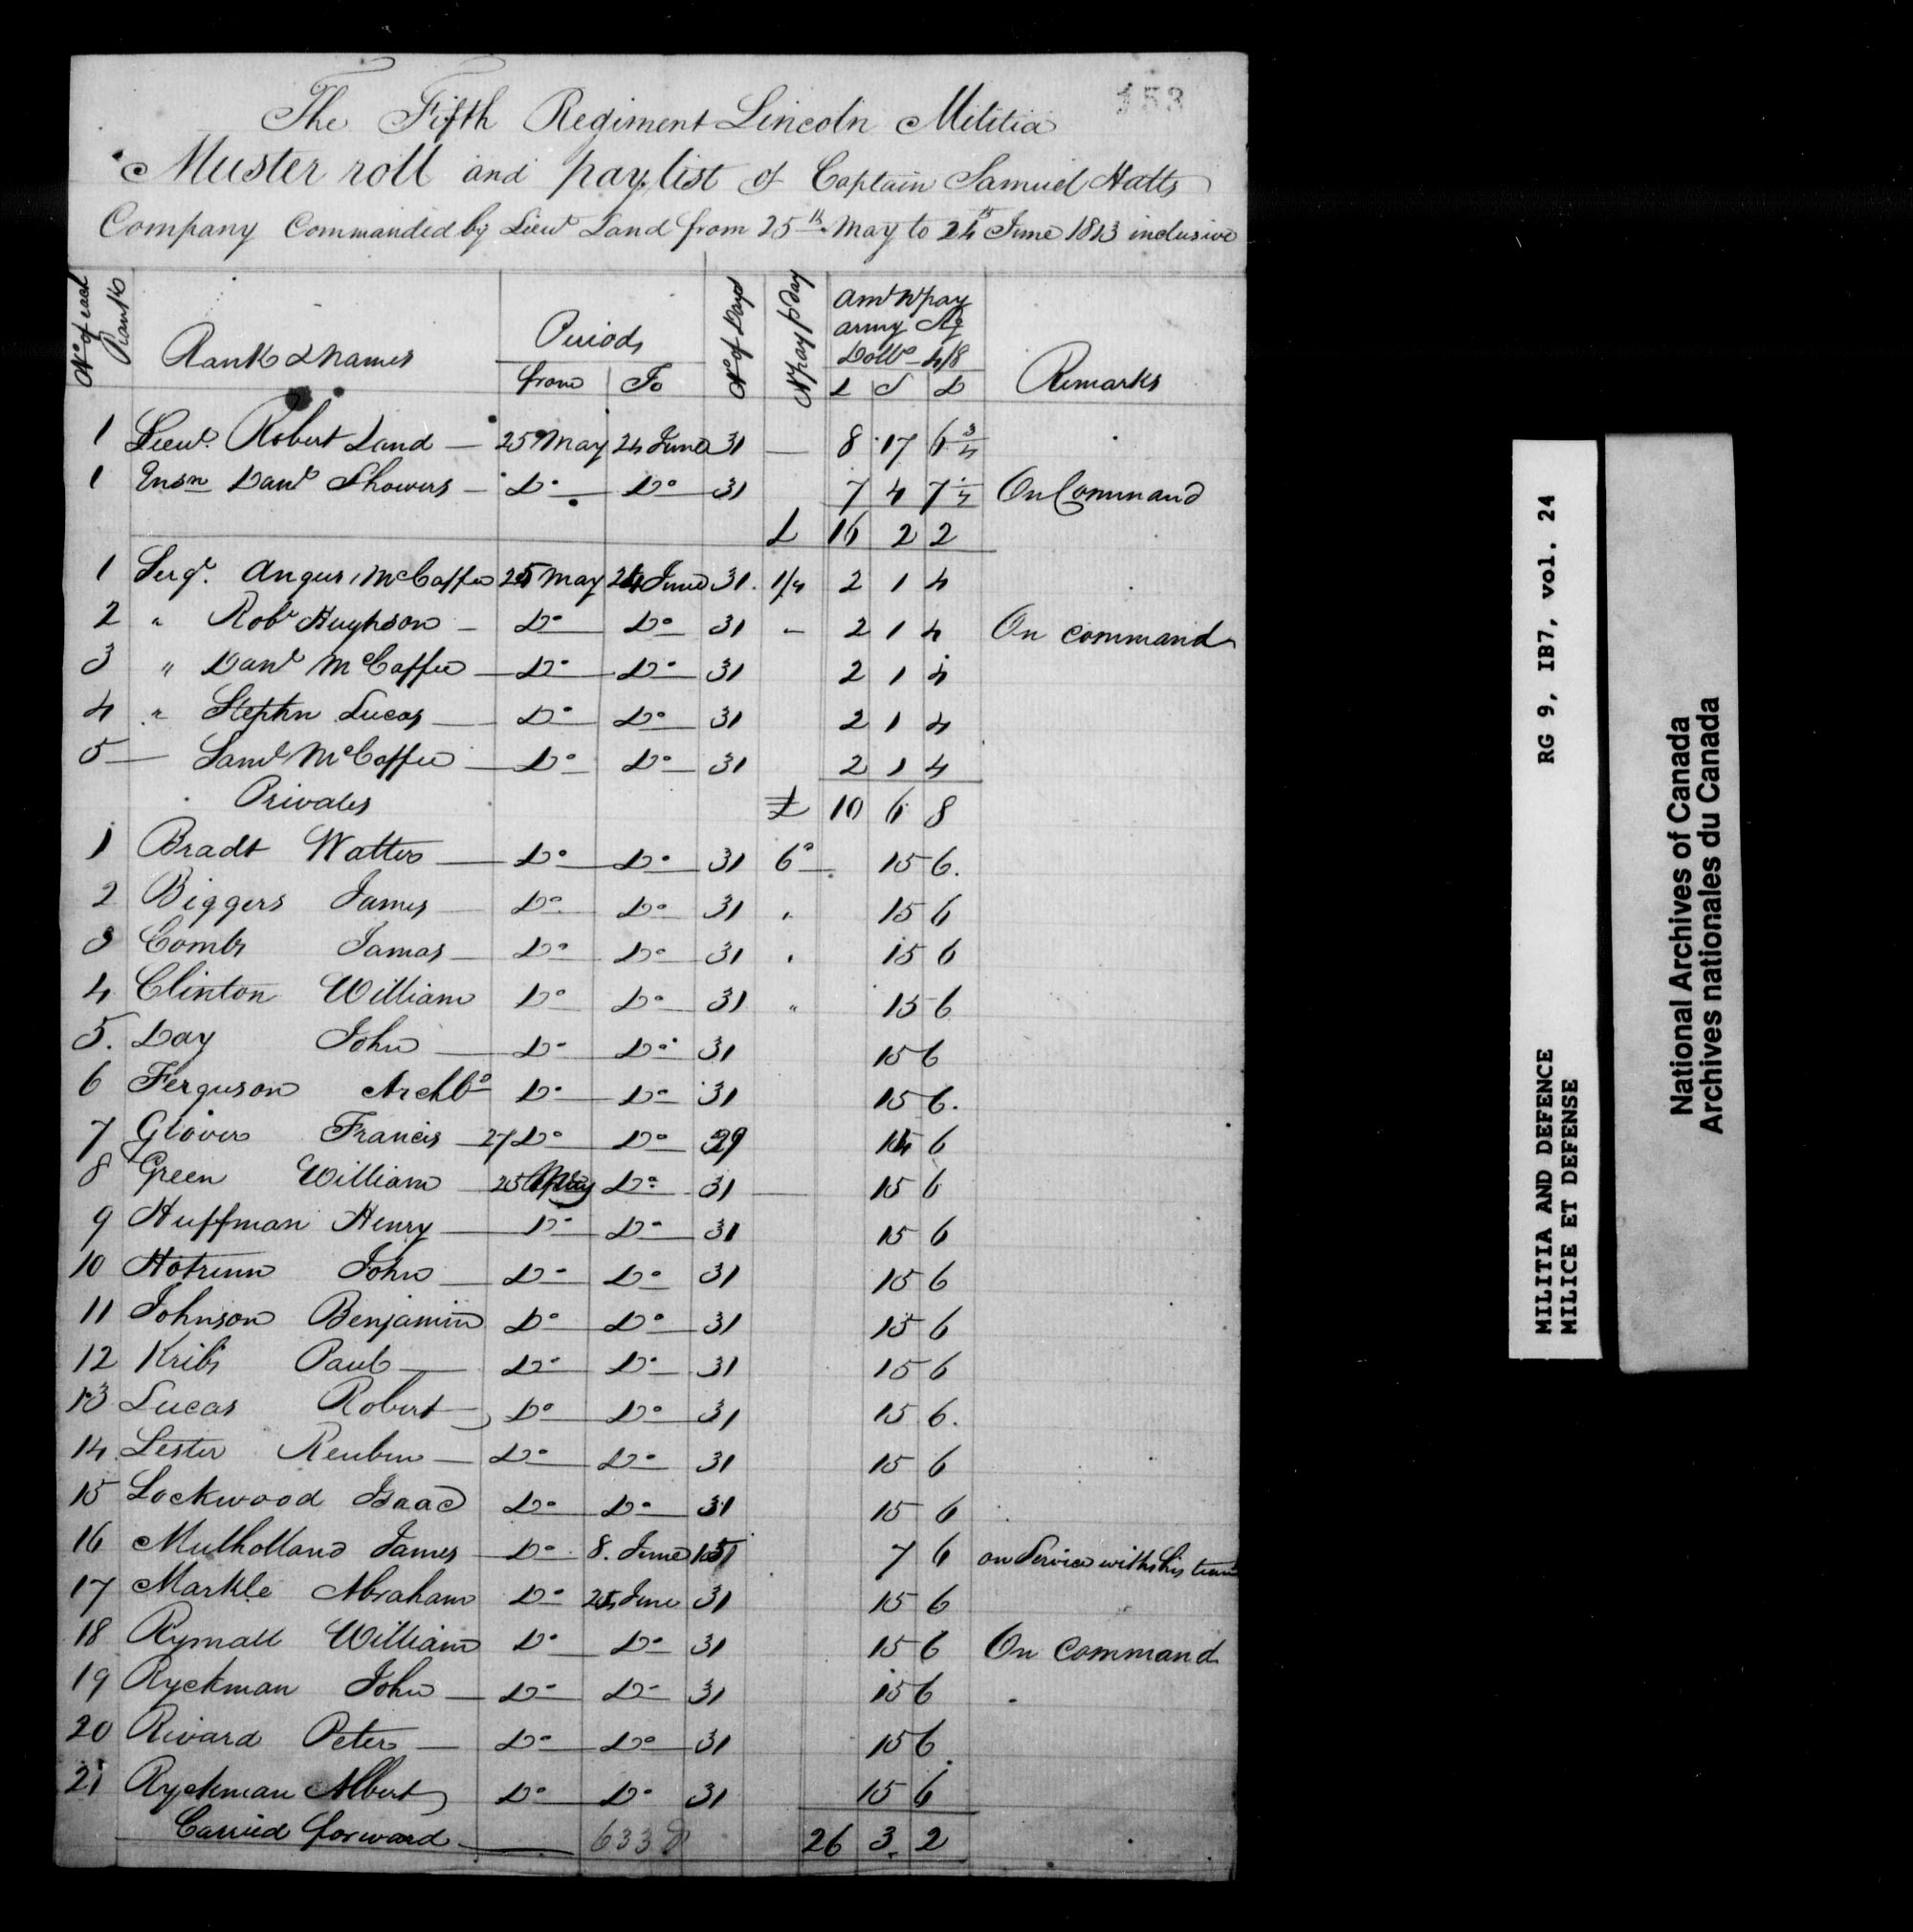 153
The Fifth Regiment Lincoln Militia
Muster roll and pay list of Captain Samuel Hatts
Company Commanded by Lieut Land from 25th May to 24th June 1813 inclusive
No of each Rank | Rank & Names | Periods from | To | No of Days | pay p Day | Amt pay army Dollrs 4/8 £ S D | Remarks
1 Lieut. Robert Land — 25 May 24 June 31 — 8 17 6 3/4
1 Ensn Danl Showers — Do Do 31 7 4 7 1/4 On Command
£ 16 2 2
1 Sergt. Angus McCaffee 25 May 24 June 31 1/4 2 1 4
2 " Robt Hughson — Do Do 31 " 2 1 4 On command
3 " Danl McCaffee — Do Do 31 2 1 4
4 " Stephn Lucas — Do Do 31 2 1 4
5 — Saml McCaffee — Do Do 31 2 1 4
Privates £ 10 6 8
1 Bradt Watters — Do Do 31 6d 15 6
2 Biggers James — Do Do 31 " 15 6
3 Combs James — Do Do 31 " 15 6
4 Clinton William Do Do 31 " 15 6
5. Day John — Do Do 31 15 6
6 Ferguson Archbd Do Do 31 15 6
7 Glover Francis — 27 Do Do 29 14 6
8 Green William — 25 May Do 31 — 15 6
9 Huffman Henry — Do Do 31 15 6
10 Hotrum John — Do Do 31 15 6
11 Johnson Benjamin Do Do 31 15 6
12 Kribs Paul — Do Do 31 15 6
13 Lucas Robert — Do Do 31 15 6
14 Lester Reuben — Do Do 31 15 6
15 Lockwood Isaac Do Do 31 15 6
16 Mulholland James — Do 8. June 15 7 6 on Service with his team
17 Markle Abraham Do 24 June 31 15 6
18 Rymall William Do Do 31 15 6 On Command
19 Ryckman John — Do Do 31 15 6
20 Rivard Peter — Do Do 31 15 6
21 Ryckman Albert Do Do 31 15 6
Carried forward — 26 3 2
MILITIA AND DEFENCE RG 9, IB7, vol. 24
MILICE ET DEFENSE
National Archives of Canada
Archives nationales du Canada